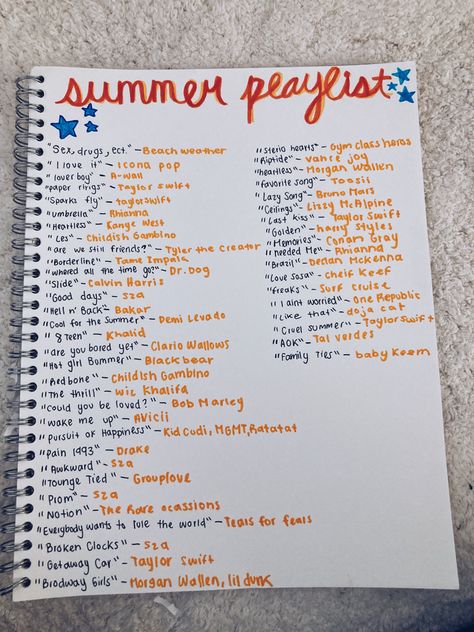 summer playlist
"Sex, drugs, ect." - Beach weather
"I love it" - Icona pop
"lover boy" - A-wall
"paper rings" - Taylor swift
"Sparks fly" - taylor swift
"umbrella" - Rhianna
"Heartless" - Kanye west
"Les" - Childish Gambino
"are we still friends?" - Tyler the Creator
"Borderline" - Tame Impala
"whered all the time go?" - Dr. Dog
"Slide" - Calvin Harris
"Good days" - sza
"Hell n' Back" - Bakar
"Cool for the summer" - Demi Levado
"8 Teen" - Khalid
"are you bored yet" - Clario Wallows
"Hot girl Bummer" - Blackbear
"Redbone" - Childish Gambino
"The thrill" - wiz Khalifa
"Could you be loved?" - Bob Marley
"wake me up" - Avicii
"pursuit of Happiness" - Kid Cudi, MGMT, Ratatat
"Pain 1993" - Drake
"Awkward" - Sza
"Tounge Tied" - Grouplove
"Prom" - Sza
"Notion" - The Rare ocassions
"Everybody wants to rule the world" - Tears for fears
"Broken Clocks" - Sza
"Getaway Car" - Taylor Swift
"Brodway Girls" - Morgan Wallen, lil durk
"sterio hearts" - Gym class heros
"Riptide" - vance joy
"heartless" - Morgan Wallen
"favorite song" - Toosii
"Lazy Song" - Bruno Mars
"Ceilings" - Lizzy McAlpine
"Last kiss" - Taylor Swift
"Golden" - harry styles
"Memories" - Conan Gray
"needed Me" - Rhianna
"Brazil" - Declan Mckenna
"Love sosa" - Cheif Keef
"freaks" - Surf Cruise
"I aint worried" - One Republic
"Like that" - doja cat
"Cruel summer" - Taylor Swift
"AOK" - Tai verdes
"Family Ties" - baby Keem